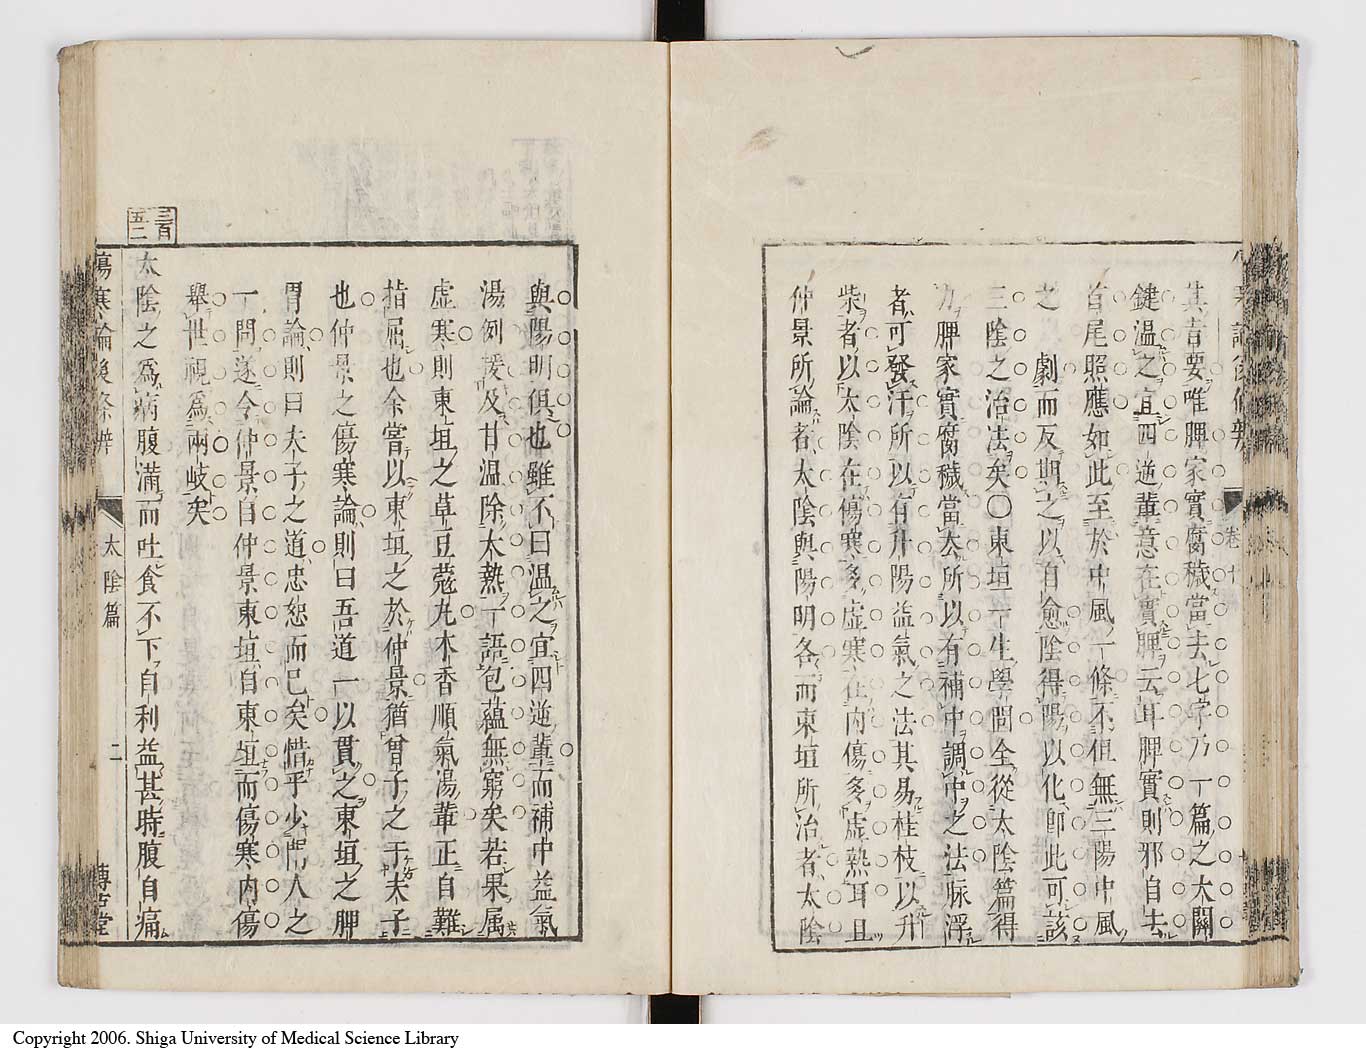 其吉要唯脾家實腐穢當去七字乃一篇之大關
鍵溫之宜四逆輩意在實脾云耳脾實則邪自去
首尾照應如此至於中風一條不但無三陽中風
之劇而反期之以自愈陰得陽以化卽此可該
三陰之治法矣〇東垣一生學問全從太陰篇得
力脾家實腐穢當去所以有補中調中之法脉浮
者可發汗所以有升陽益氣之法其易桂枝以升
柴者以太陰在傷寒多虛寒在內傷多虛熱耳且
仲景所論者太陰與陽明各而東垣所治者太陰
與陽明俱也雖不曰溫之宜四逆輩而補中益氣
湯例後及甘溫除大熱一語包蘊無窮矣若果属
虛寒則東垣之草豆蔻丸木香順氣湯輩正自難
指屈也余嘗以東垣之於仲景猶曾子之于夫子
也仲景之傷寒論則曰吾道一以貫之東垣之脾
胃論則曰夫子之道忠恕而已矣惜乎少門人之
一問遂令仲景自仲景東垣自東垣而傷寒內傷
舉世視爲兩岐矣
三百
五二
太陰之爲病腹滿而吐食不下自利益甚時腹自痛
傷寒論後條辨
太陰篇
二
博古堂
卷十